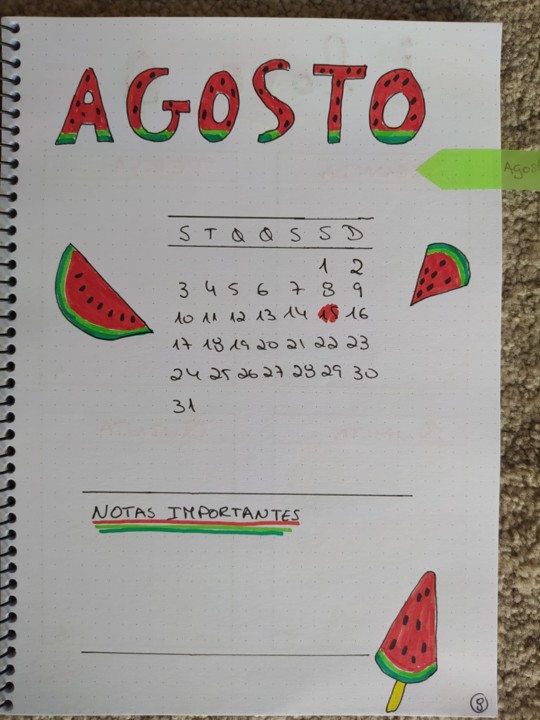 AGOSTO
Agost
S T Q Q S S D
1 2
3 4 5 6 7 8 9
10 11 12 13 14 15 16
17 18 19 20 21 22 23
24 25 26 27 28 29 30
31
NOTAS IMPORTANTES
8